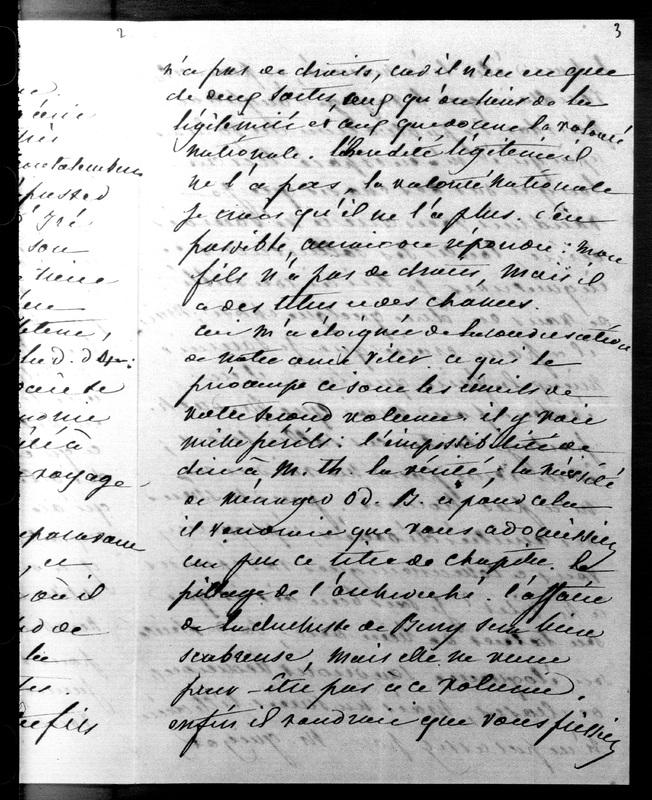 2
3
n'a pas de droits, car il n'en est que
de deux sortes, ceux qu'on tient de la
légitimité et ceux que donne la volonté
nationale. l'hérédité légitime il
ne l'a pas, la volonté nationale
je crois qu'il ne l'a plus. c'est
possible, aurait on répondu : mon
fils n'a pas de droits, mais il
a des titres et des chances.
ceci m'a éloignée de la conversation
de notre ami Vitet. ce qui le
préoccupe ce sont les écueils de
votre second volume. il y voit
mille périls : l'impossibilité de
dire à M. Th. la vérité ; la nécessité
de ménager Od. B. et pour cela
il voudrait que vous adoucissiez
un peu ce titre de chapitre. le
pillage de l'archevêché. l'affaire
de la duchesse de Berry sera bien
scabreuse, mais elle ne vient
peut-être pas à ce volume.
enfin il voudrait que vous fissiez
son
voyage
auparavant
où il
de
fils